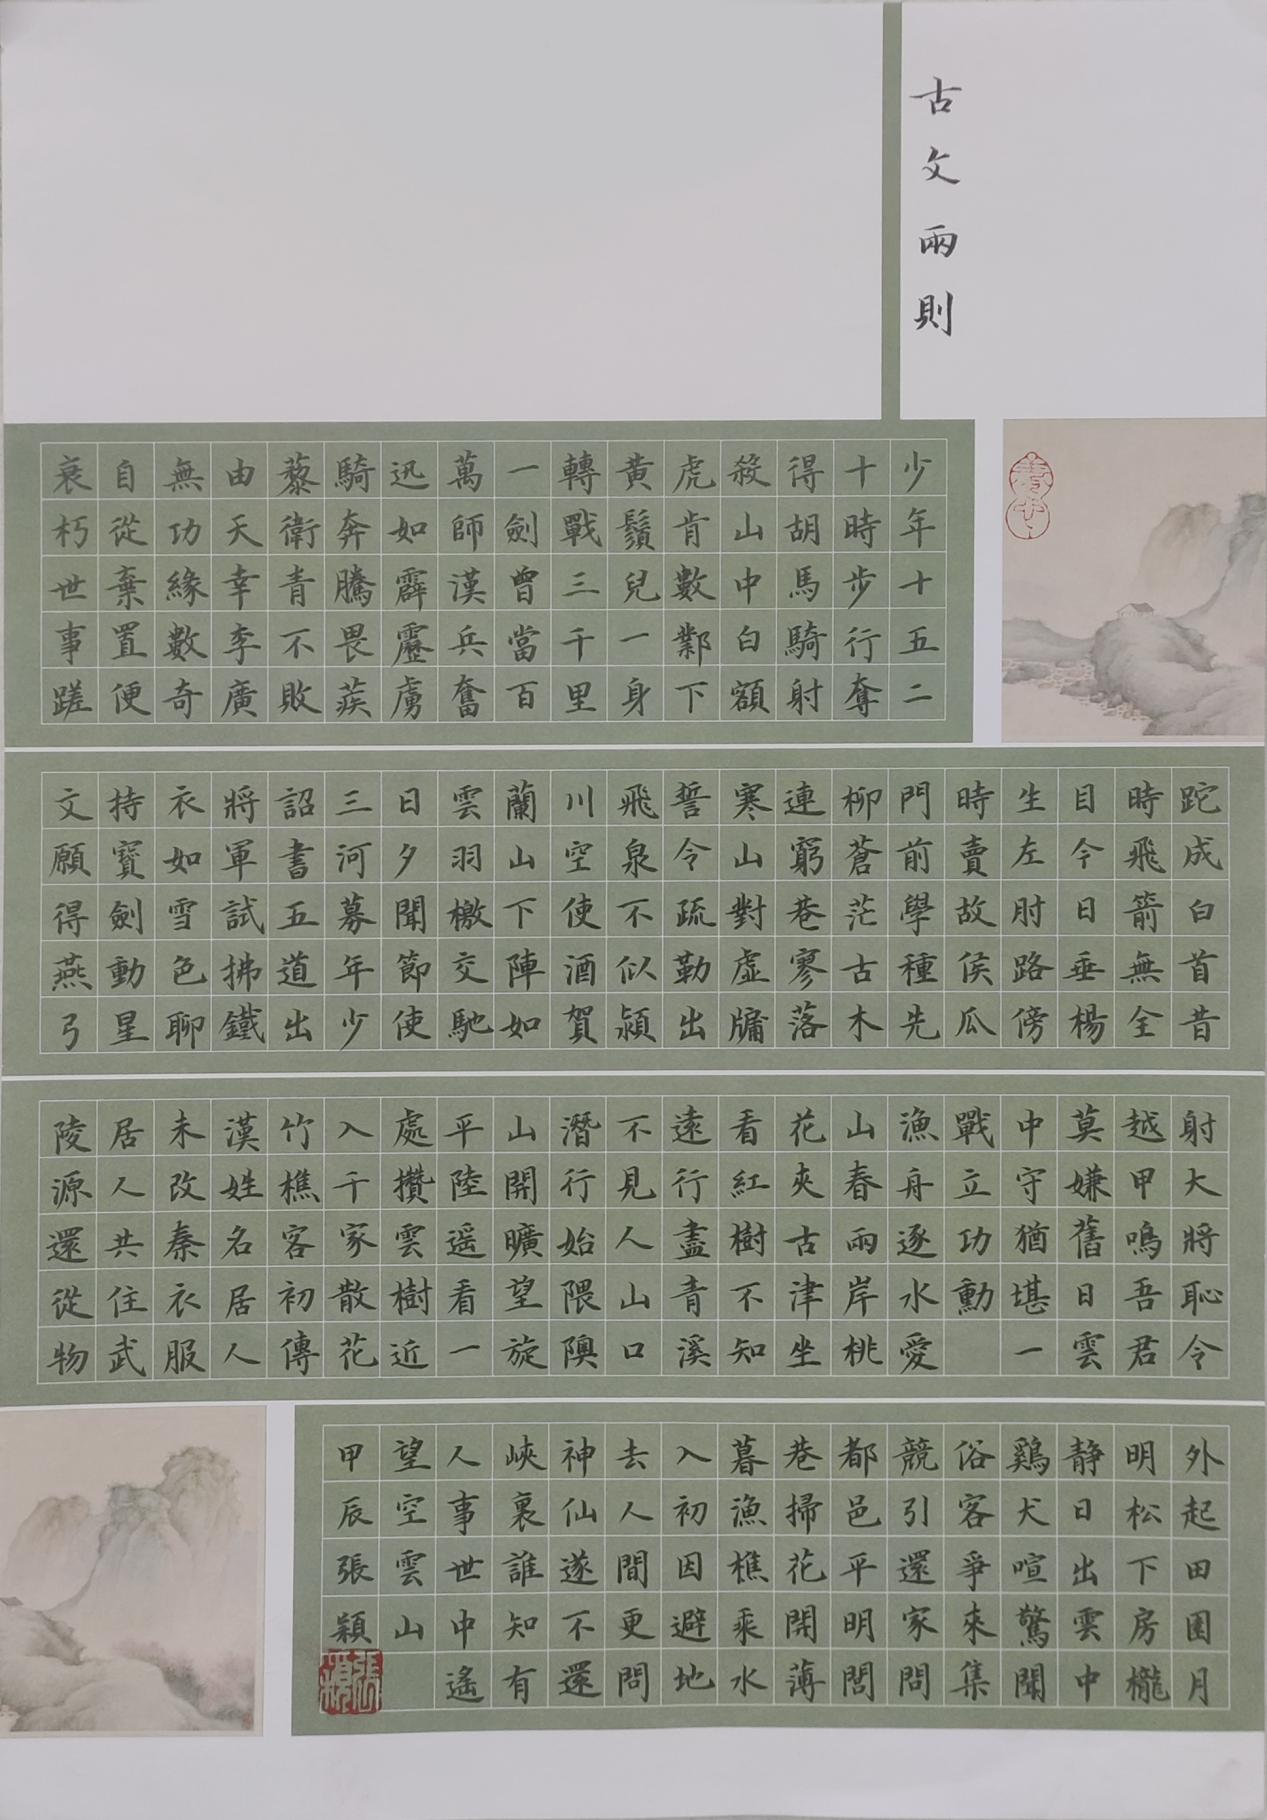 古文兩則
少年十五二
十時步行奪
得胡馬騎射
殺山中白額
虎肯數鄴下
黃鬚兒一身
轉戰三千里
一劍曾當百
萬師漢兵奮
迅如霹靂虜
騎奔騰畏蒺
藜衛青不敗
由天幸李廣
無功緣數奇
自從棄置便
衰朽世事蹉
跎成白首昔
時飛箭無全
目今日垂楊
生左肘路傍
時賣故侯瓜
門前學種先
柳蒼茫古木
連窮巷寥落
寒山對虛牖
誓令疏勒出
飛泉不似潁
川空使酒賀
蘭山下陣如
雲羽檄交馳
日夕聞節使
三河募年少
詔書五道出
將軍試拂鐵
衣如雪色聊
持寶劍動星
文願得燕弓
射大將恥令
越甲鳴吾君
莫嫌舊日雲
中守猶堪一
戰立功勳
漁舟逐水愛
山春兩岸桃
花夾古津坐
看紅樹不知
遠行盡青溪
不見人山口
潛行始隈隩
山開曠望旋
平陸遥看一
處攢雲樹近
入千家散花
竹樵客初傳
漢姓名居人
未改秦衣服
居人共住武
陵源還從物
外起田園月
明松下房櫳
静日出雲中
鷄犬喧驚聞
俗客爭來集
競引還家問
都邑平明閭
巷掃花開薄
暮漁樵乘水
入初因避地
去人間更問
神仙遂不還
峽裏誰知有
人事世中遙
望空雲山
甲辰張穎